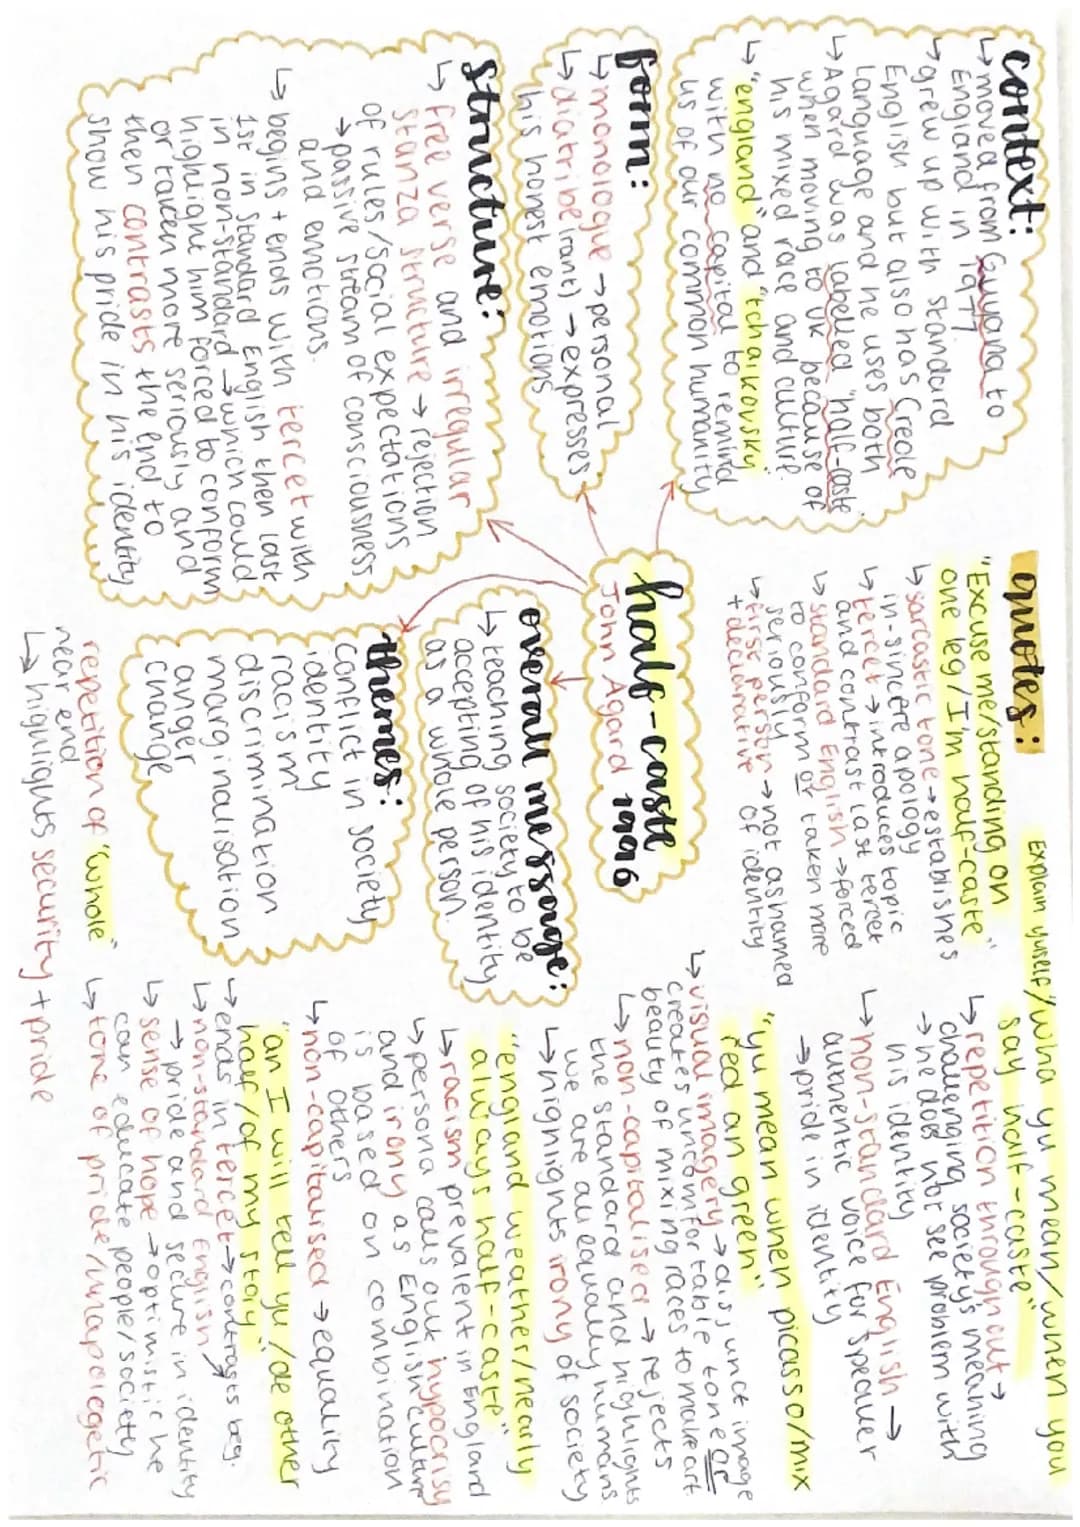 context:
↳ moved from Guyana to
England in 1977
↳ grew up with standard
English but also has Creole
language and he uses both
↳ Agard was labelled "half-caste"
when moving to UK because of
his mixed race and culture.
↳ "england" and "tchaikovsky"
with no capital to remind
us of our common humanity
form:
↳ monologue → personal
↳ diatribe (rant) → expresses
his honest emotions
structure:
↳ free verse and irregular
stanza structure → rejection
of rules/social expectations
→ passive stream of consciousness
and emotions.
↳ begins + ends with tercet with
1st in Standard English then last
in non-standard → which could
highlight him forced to conform
or taken more seriously and
then contrasts the end to
show his pride in his identity
half-caste
John Agard 1996
overall message:
↳ teaching society to be
accepting of his identity
as a whole person.
themes:
conflict in society
identity
racism
discrimination
marginalisation
anger
change
quotes:
"Excuse me/standing on
one leg/I'm half-caste"
↳ sarcastic tone → establishes
in-sincere apology
↳ tercet → introduces topic
and contrast last tercet
↳ standard English → forced
to conform or taken more
seriously
↳ first person → not ashamed
+ declarative of identity
Explain yuself/wha yu mean/when you
say half-caste"
↳ repetition throughout →
challenging society's meaning
→ he does not see problem with
his identity
↳ non-standard English →
authentic voice for speaker
→ pride in identity
"yu mean when picasso/mix
red an green"
↳ visual imagery → disjunct image
creates uncomfortable tone or
beauty of mixing races to make art
↳ non-capitalised → rejects
the standard and highlights
we are all equally humans
↳ highlights irony of society
"england weather/nearly
always half-caste"
↳ racism prevalent in England
↳ persona calls out hypocrisy
and irony as English culture
is based on combination
of others
↳ non-capitalised → equality
"an I will tell yu/de other
half/of my story"
↳ ends in tercet → contrasts beg.
↳ non-standard English
→ pride and secure in identity
↳ sense of hope → optimistic he
can educate people/society
↳ tone of pride/unapologetic
repetition of "whole"
near end
↳ highlights security + pride